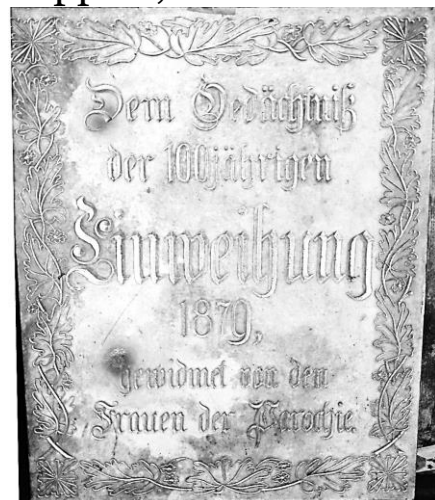 Dem Gedächtniß
der 100jährigen
Einweihung
1879,
gewidmet von den
Frauen der Parochie.